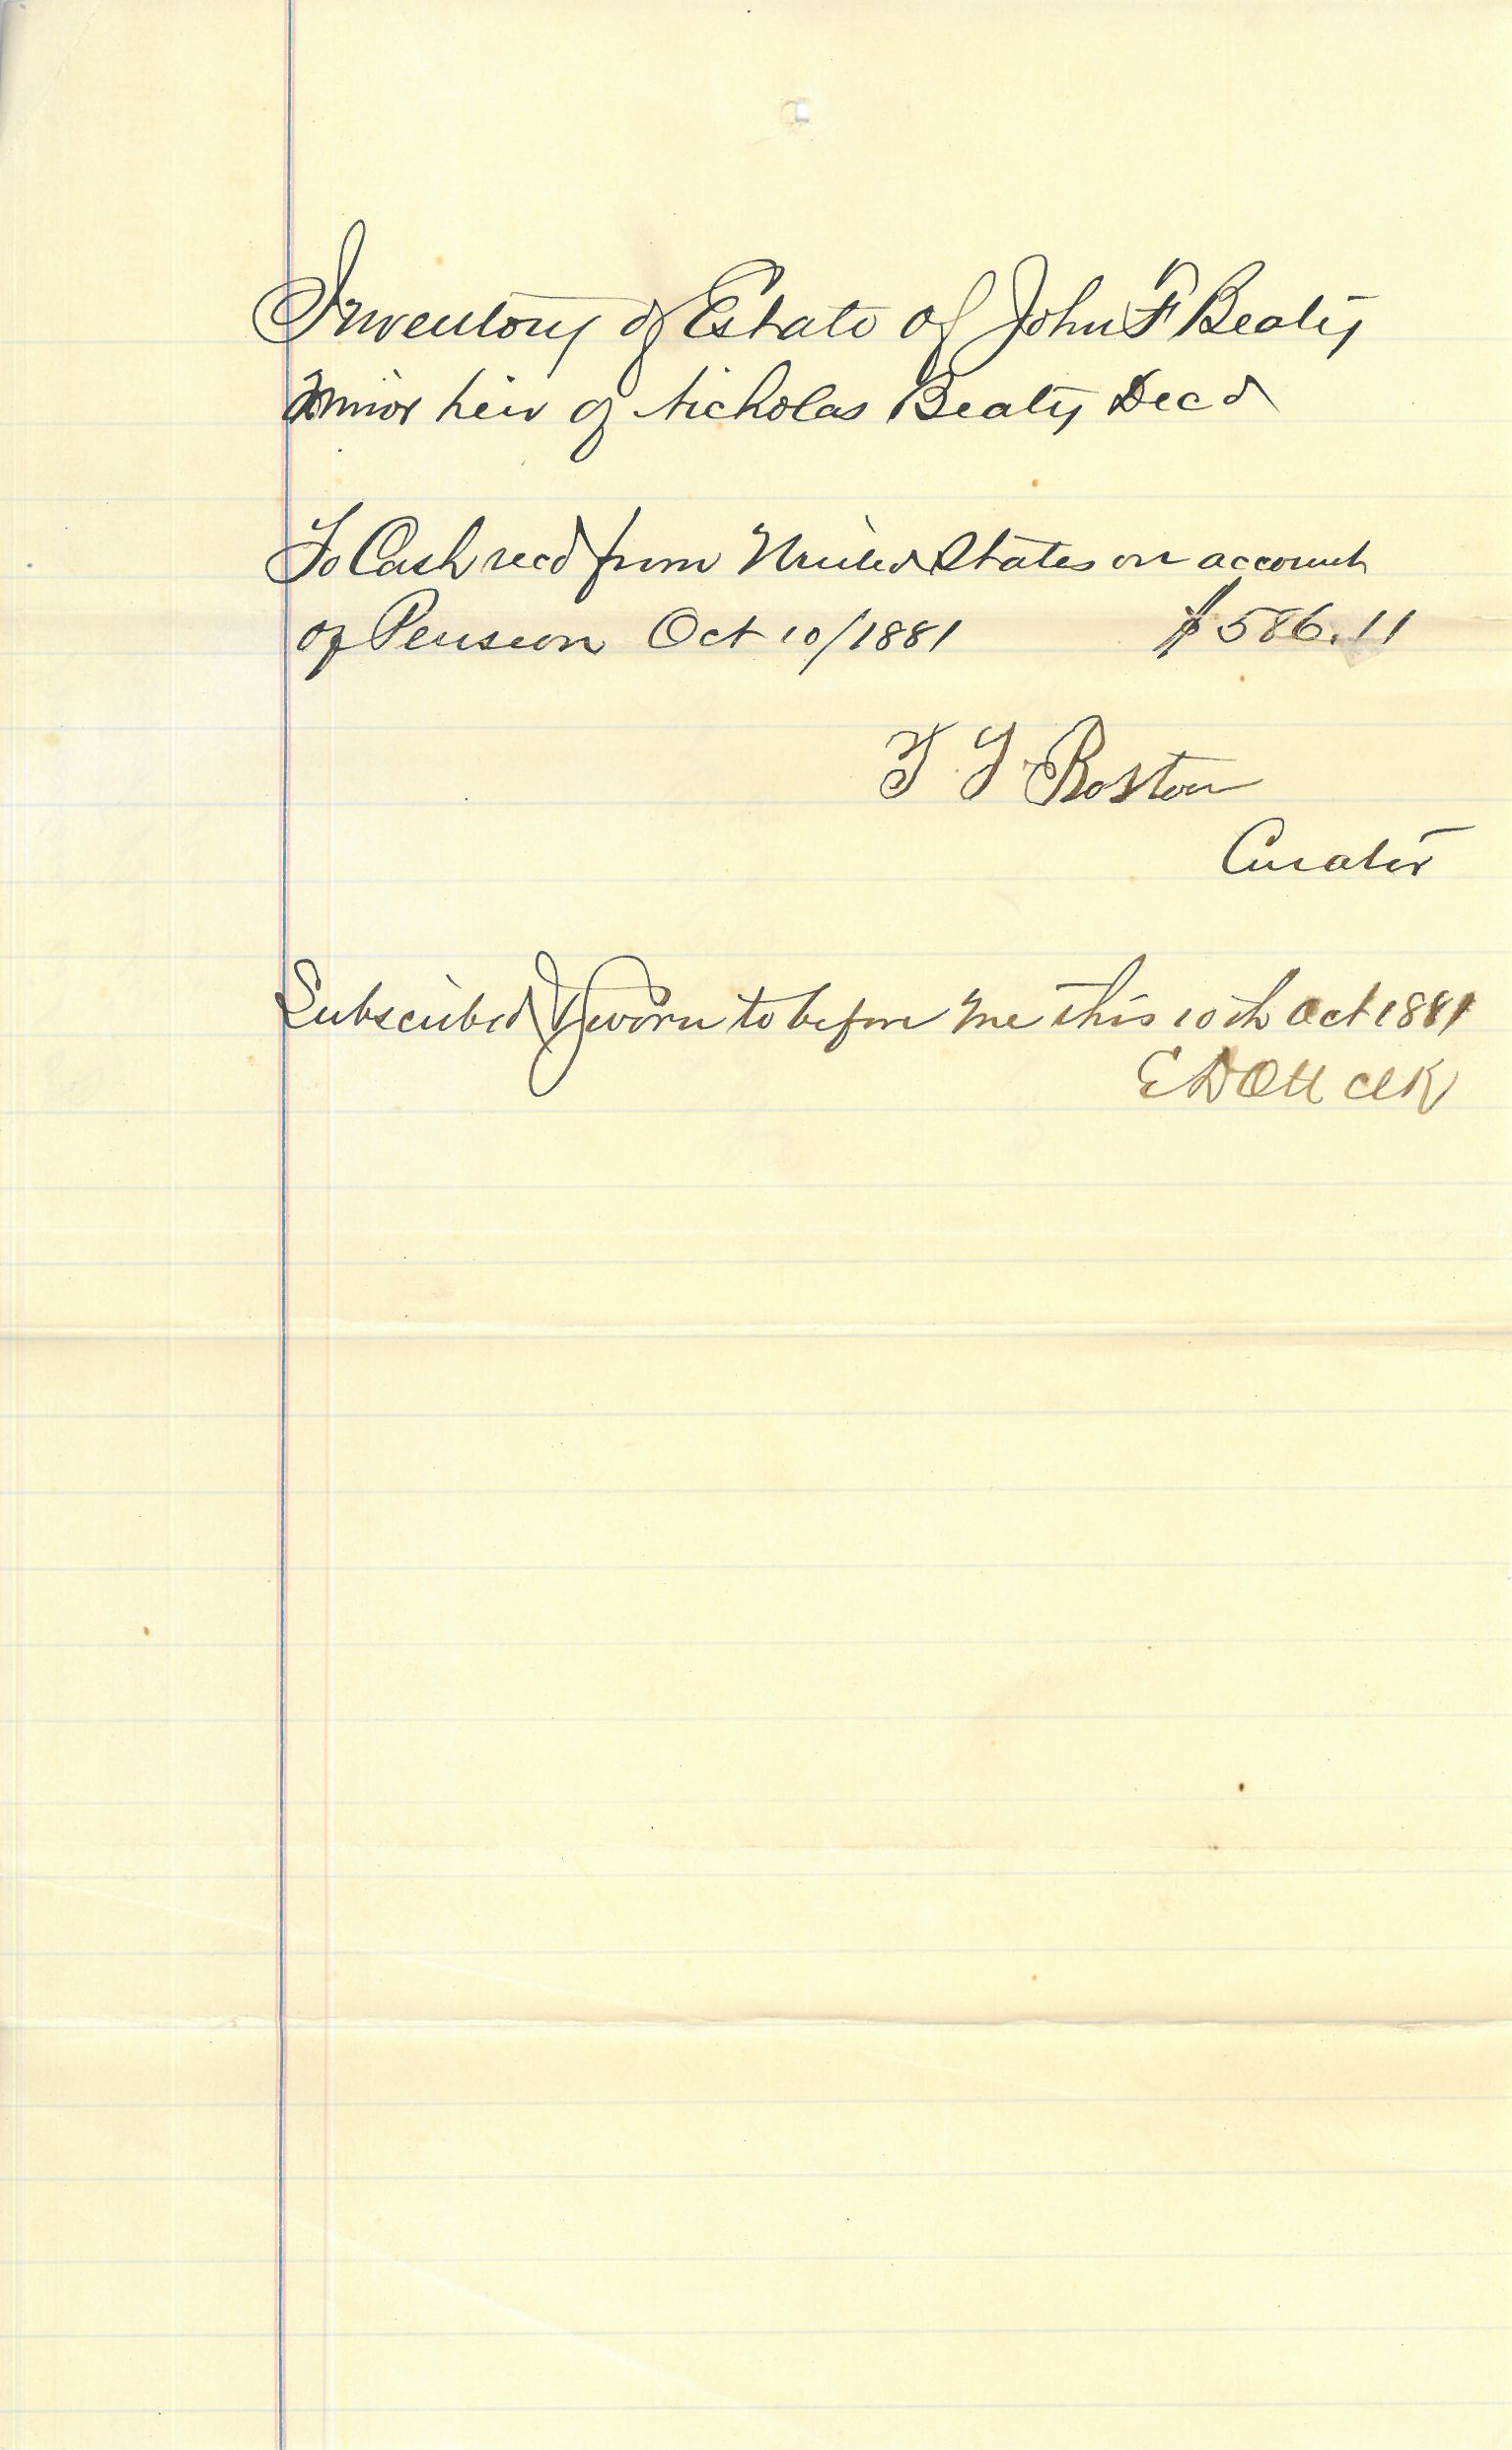 Inventory of Estate of John F Beaty
minor heir of Nicholas Beaty Decd
To Cash recd from United States on account
of Pension Oct 10/1881 $586.11
T. T. Boston
Curator
Subscribed & Sworn to before me this 10th Oct 1881
E D Ott Clk